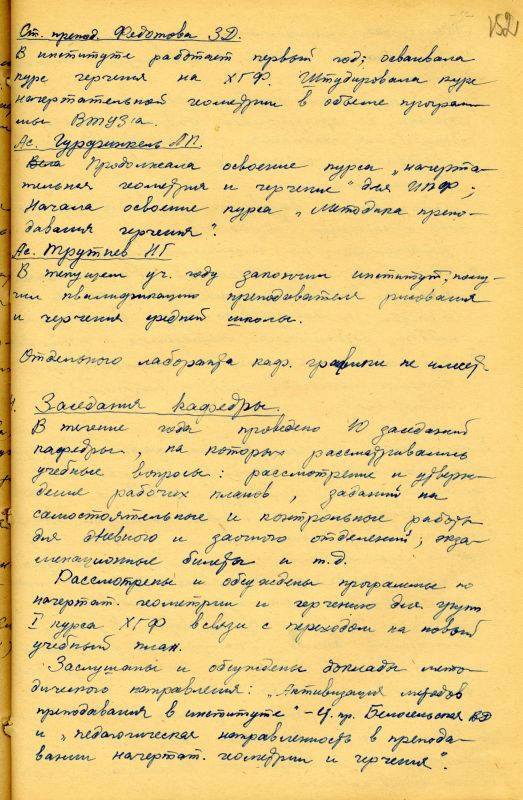 152
Ст. препод. Федотова З.Д.
В институте работает первый год; осваивала
курс черчения на ХГФ. Штудировала курс
начертательной геометрии в объеме програм-
мы ВТУЗ'а.
Ас. Гурфинкель Л.П.
Продолжала освоение курса „начерта-
тельная геометрия и черчение" для ИПФ;
Начала освоение курса „Методика препо-
давания черчения".
Ас. Трутнев И Г
В текущем уч. году закончил институт, полу-
чил квалификацию преподавателя рисования
и черчения средней школы.
Отдельного лаборанта каф. графики не имеет
4. Заседания кафедры.
В течение года проведено 10 заседаний
кафедры, на которых рассматривались
учебные вопросы: рассмотрение и утверж-
дение рабочих планов, заданий на
самостоятельные и контрольные работы
для дневного и заочного отделений; экза-
менационные билеты и т.д.
Рассмотрены и обсуждены программы по
начертат. геометрии и черчению для групп
I курса ХГФ в связи с переходом на новый
учебный план.
Заслушаны и обсуждены доклады мето-
дического направления: „Активизация методов
преподавания в институте" – Ст. пр. Белосельская ВД
и „педагогическая направленность в препода-
вании начертат. геометрии и черчения".